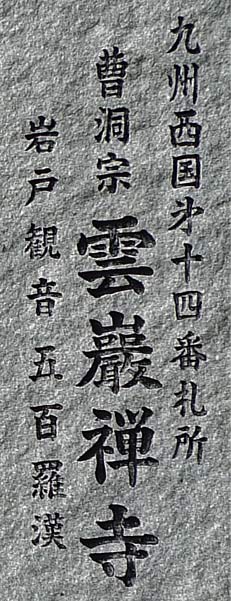 九州西国㐧十四番札所
曹洞宗 雲巖禅寺
岩戸観音五百羅漢